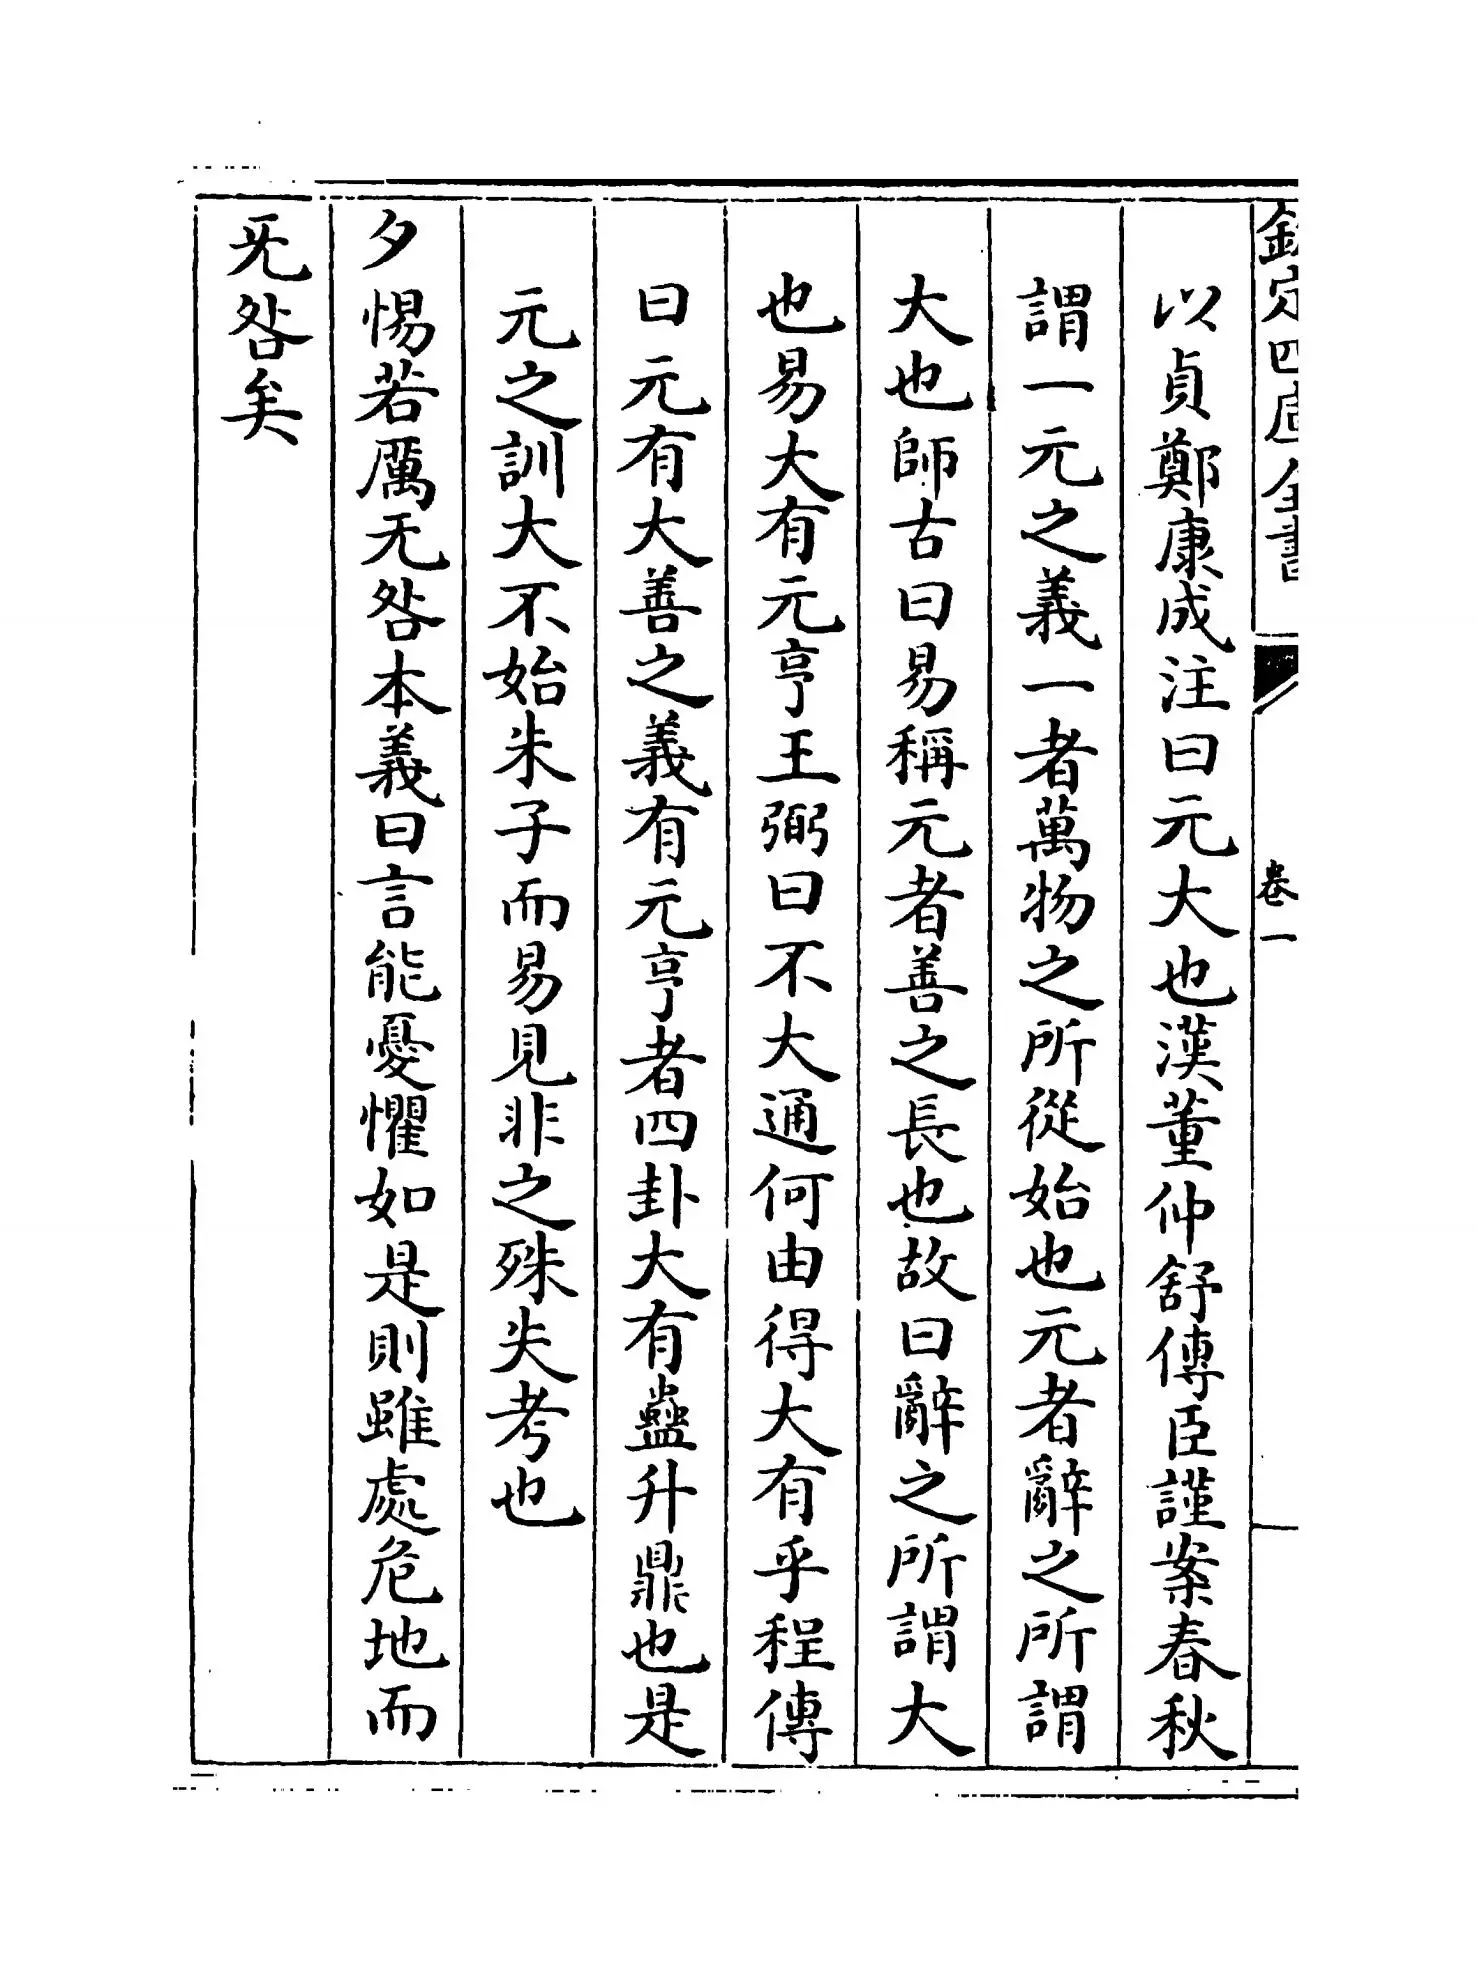 欽定四庫全書
卷一
以貞鄭康成注曰元大也漢董仲舒傳臣謹案春秋
謂一元之義一者萬物之所從始也元者辭之所謂
大也師古曰易稱元者善之長也故曰辭之所謂大
也易大有元亨王弼曰不大通何由得大有乎程傳
曰元有大善之義有元亨者四卦大有蠱升鼎也是
元之訓大不始朱子而易見非之殊失考也
夕惕若厲无咎本義曰言能憂懼如是則雖處危地而
无咎矣